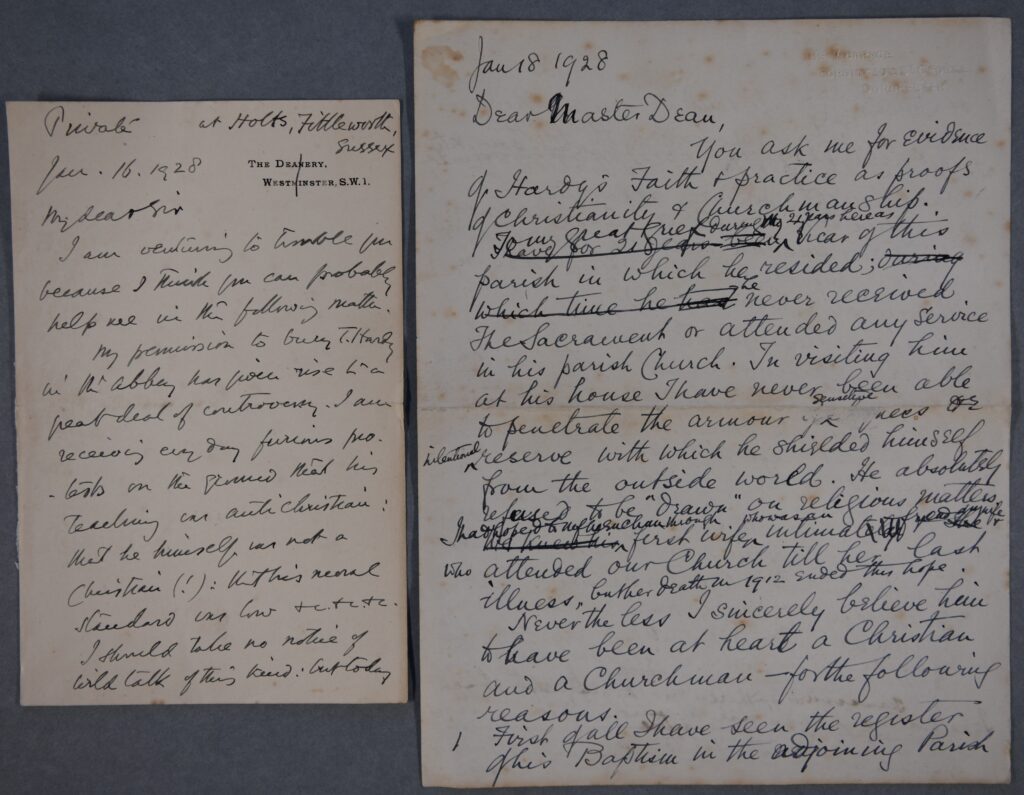 Private at Holts, Fittleworth,
Sussex
Jan. 16. 1928
THE DEANERY,
WESTMINSTER, S.W.1.
My dear Sir
I am venturing to trouble you
because I think you can probably
help me in the following matter.
My permission to bury T. Hardy
in the Abbey has given rise to a
great deal of controversy. I am
receiving every day furious pro-
-tests on the ground that his
teaching was antichristian:
that he himself was not a
Christian (!): that his moral
standard was low &c. &c. &c.
I should take no notice of
wild talk of this kind: but today
Jan 18 1928
Dear Master Dean,
You ask me for evidence
of Hardy's Faith & practice as proofs
of Christianity & Churchmanship.
To my great grief during my 21 years here as
I have for 21 years been Vicar of this
parish in which he resided; during
which time he had he never received
The Sacrament or attended any Service
in his parish Church. In visiting him
at his house I have never been able
to penetrate the armour of sensitive
intentional reserve with which he shielded himself
from the outside world. He absolutely
refused to be "drawn" on religious matters.
I had hoped to through who was an
first wife, intimate friend of my wife &
who attended our Church till her last
illness, but her death in 1912 ended this hope.
Never the less I sincerely believe him
to have been at heart a Christian
and a Churchman – for the following
reasons.
1 First of all I have seen the register
of his Baptism in the adjoining Parish